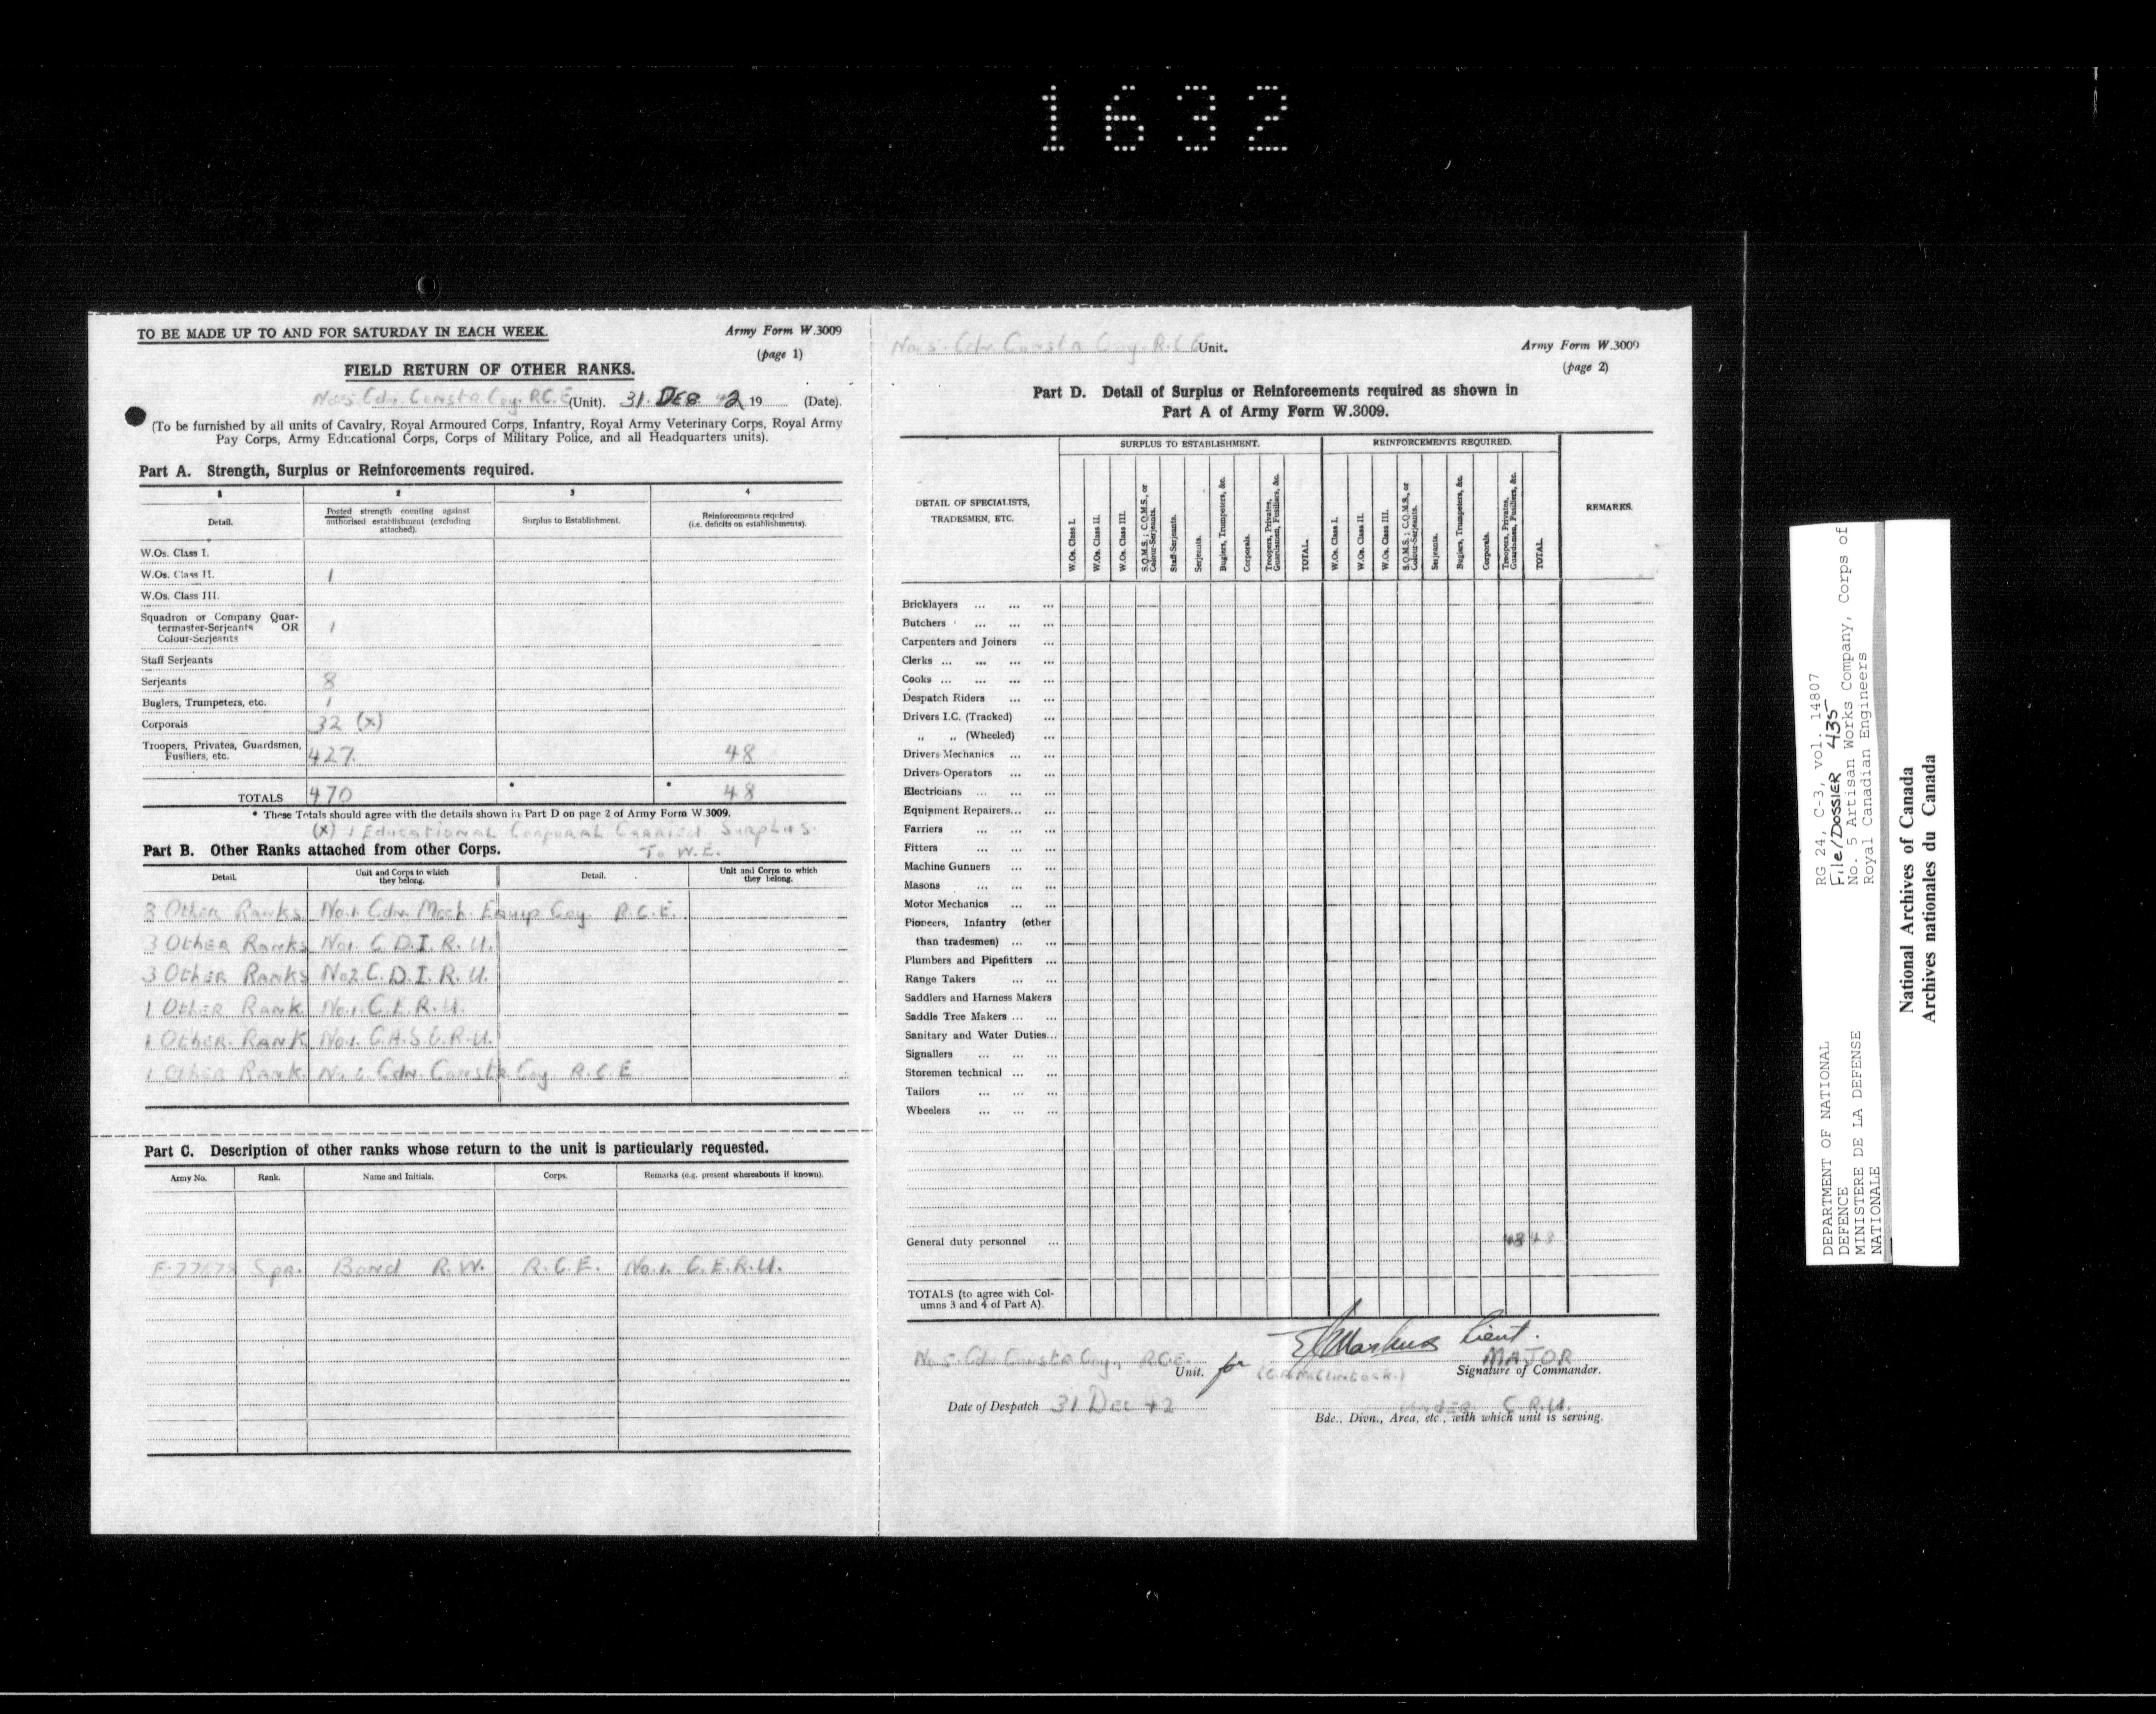 1632
TO BE MADE UP TO AND FOR SATURDAY IN EACH WEEK.
Army Form W.3009
(page 1)
FIELD RETURN OF OTHER RANKS.
No 5 Cdn. Constn Coy. R.C.E (Unit). 31. DEC. 42 19 (Date).
(To be furnished by all units of Cavalry, Royal Armoured Corps, Infantry, Royal Army Veterinary Corps, Royal Army
Pay Corps, Army Educational Corps, Corps of Military Police, and all Headquarters units).
Part A. Strength, Surplus or Reinforcements required.
1 2 3 4
Detail. Posted strength counting against authorised establishment (excluding attached). Surplus to Establishment. Reinforcements required (i.e. deficits on establishments).
W.Os. Class I.
W.Os. Class II. 1
W.Os. Class III.
Squadron or Company Quar-
termaster-Serjeants OR 1
Colour-Serjeants
Staff Serjeants
Serjeants 8
Buglers, Trumpeters, etc. 1
Corporals 32 (x)
Troopers, Privates, Guardsmen,
Fusiliers, etc. 427. 48
TOTALS 470 * * 48
* These Totals should agree with the details shown in Part D on page 2 of Army Form W.3009.
(x) 1 Educational Corporal Carried Surplus
To W.E.
Part B. Other Ranks attached from other Corps.
Detail. Unit and Corps to which they belong. Detail. Unit and Corps to which they belong.
3 Other Ranks No.1. Cdn. Mech. Equip Coy. R.C.E.
3 Other Ranks No1. C.D.I.R.U.
3 Other Ranks No2. C.D.I.R.U.
1 Other Rank No.1. C.E.R.U.
1 Other Rank No.1. C.A.S.C.R.U.
1 Other Rank No 6 Cdn. Constn Coy R.C.E
Part C. Description of other ranks whose return to the unit is particularly requested.
Army No. Rank. Name and Initials. Corps. Remarks (e.g. present whereabouts if known).
Spr. Bond R.W. R.C.E. No.1. C.E.R.U.
No 5. Cdn. Constn Coy. R.C.E Unit.
Army Form W.3009
(page 2)
Part D. Detail of Surplus or Reinforcements required as shown in
Part A of Army Form W.3009.
SURPLUS TO ESTABLISHMENT. REINFORCEMENTS REQUIRED.
DETAIL OF SPECIALISTS,
TRADESMEN, ETC.
W.Os. Class I.
W.Os. Class II.
W.Os. Class III.
S.Q.M.S.; C.Q.M.S., or Colour-Serjeants.
Staff-Serjeants.
Serjeants.
Buglers, Trumpeters, &c.
Corporals.
Troopers, Privates, Guardsmen, Fusiliers, &c.
TOTAL.
W.Os. Class I.
W.Os. Class II.
W.Os. Class III.
S.Q.M.S.; C.Q.M.S., or Colour-Serjeants.
Serjeants.
Buglers, Trumpeters, &c.
Corporals.
Troopers, Privates, Guardsmen, Fusiliers, &c.
TOTAL.
REMARKS.
Bricklayers ... ... ...
Butchers ... ... ...
Carpenters and Joiners ...
Clerks ... ... ... ...
Cooks ... ... ... ...
Despatch Riders ... ...
Drivers I.C. (Tracked) ...
„ „ (Wheeled) ...
Drivers Mechanics ... ...
Drivers Operators ... ...
Electricians ... ... ...
Equipment Repairers... ...
Farriers ... ... ...
Fitters ... ... ...
Machine Gunners ... ...
Masons ... ... ...
Motor Mechanics ... ...
Pioneers, Infantry (other
than tradesmen) ... ...
Plumbers and Pipefitters ...
Range Takers ... ...
Saddlers and Harness Makers
Saddle Tree Makers ... ...
Sanitary and Water Duties...
Signallers ... ... ...
Storemen technical ... ...
Tailors ... ... ...
Wheelers ... ... ...
General duty personnel ... 48 48
TOTALS (to agree with Col-
umns 3 and 4 of Part A).
Lieut.
No 5. Cdn Constn Coy., R.C.E. Unit. for MAJOR
Signature of Commander.
Date of Despatch 31 Dec 42
UNDER C.R.U.
Bde., Divn., Area, etc., with which unit is serving.
RG 24, C-3, vol. 14807
File/DOSSIER 435
No. 5 Artisan Works Company, Corps of
Royal Canadian Engineers
DEPARTMENT OF NATIONAL
DEFENCE
MINISTERE DE LA DEFENSE
NATIONALE
National Archives of Canada
Archives nationales du Canada